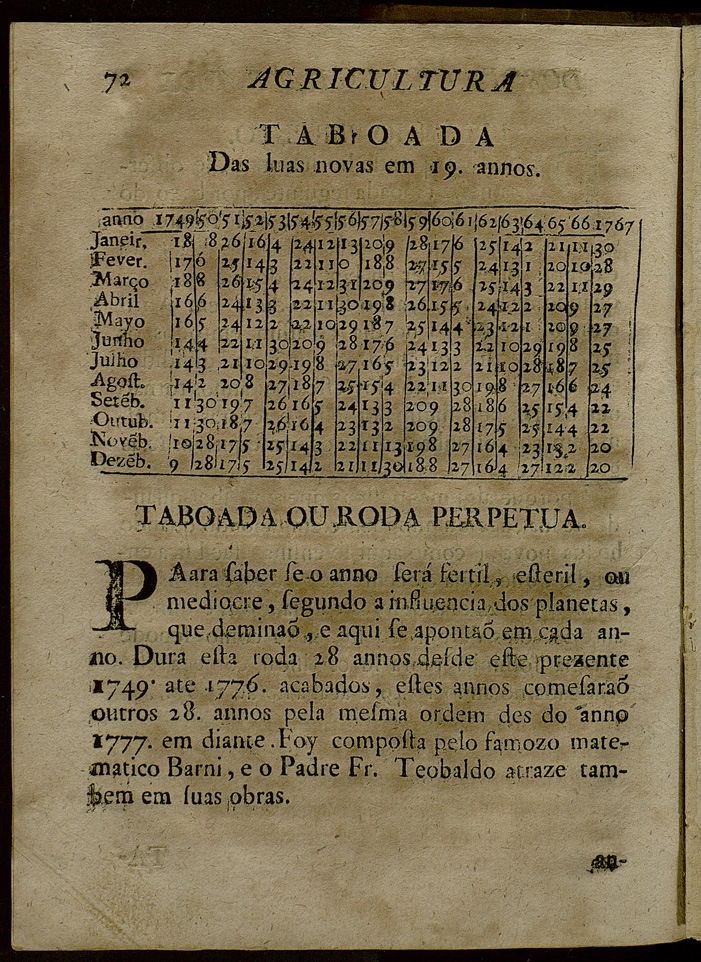 72 AGRICULTURA
TABOADA
Das luas novas em 19. annos.
anno 1749 50 51 52 53 54 55 56 57 58 59 60 61 62 63 64 65 66 1767
Janeir. 18 8 26 16 4 24 12 13 20 9 28 17 6 25 14 2 21 11 30
Fever. 17 6 25 14 3 22 11 0 18 8 27 15 5 24 13 1 20 10 28
Março 18 8 26 15 4 24 12 31 20 9 27 17 6 25 14 3 22 11 29
Abril 16 6 24 13 3 22 11 30 19 8 26 15 5 24 12 2 20 9 27
Mayo 16 5 24 12 2 22 10 29 18 7 25 14 4 23 12 1 20 9 27
Junho 14 4 22 11 30 20 9 28 17 6 24 13 3 22 10 29 19 8 25
Julho 14 3 21 10 29 19 8 27 16 5 23 12 2 21 10 28 18 7 25
Agost. 14 2 20 8 27 18 7 25 15 4 22 11 30 19 8 27 16 6 24
Setẽb. 11 30 19 7 26 16 5 24 13 3 20 9 28 18 6 25 15 4 22
Outub. 11 30 18 7 26 16 4 23 13 2 20 9 28 17 5 25 14 4 22
Novẽb. 10 28 17 5 25 14 3 22 11 13 19 8 27 16 4 23 13 2 20
Dezẽb. 9 28 17 5 25 14 2 21 11 30 18 8 27 16 4 27 12 2 20
TABOADA OU RODA PERPETUA.
PAara ſaber ſe o anno ſerá fertil, eſteril, ou
mediocre, ſegundo a influencia dos planetas,
que deminaõ, e aqui ſe apontaõ em cada an-
no. Dura eſta roda 28 annos deſde eſte prezente
1749· ate 1776. acabados, eſtes annos comeſaraõ
outros 28. annos pela meſma ordem des do anno
1777. em diante. Foy compoſta pelo famozo mate-
matico Barni, e o Padre Fr. Teobaldo atraze tam-
bem em ſuas obras.
an-